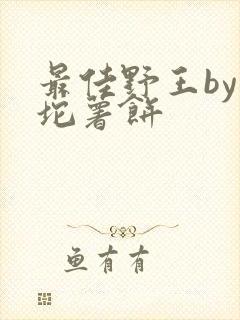 最佳野王by
坨薯餅
鱼有有